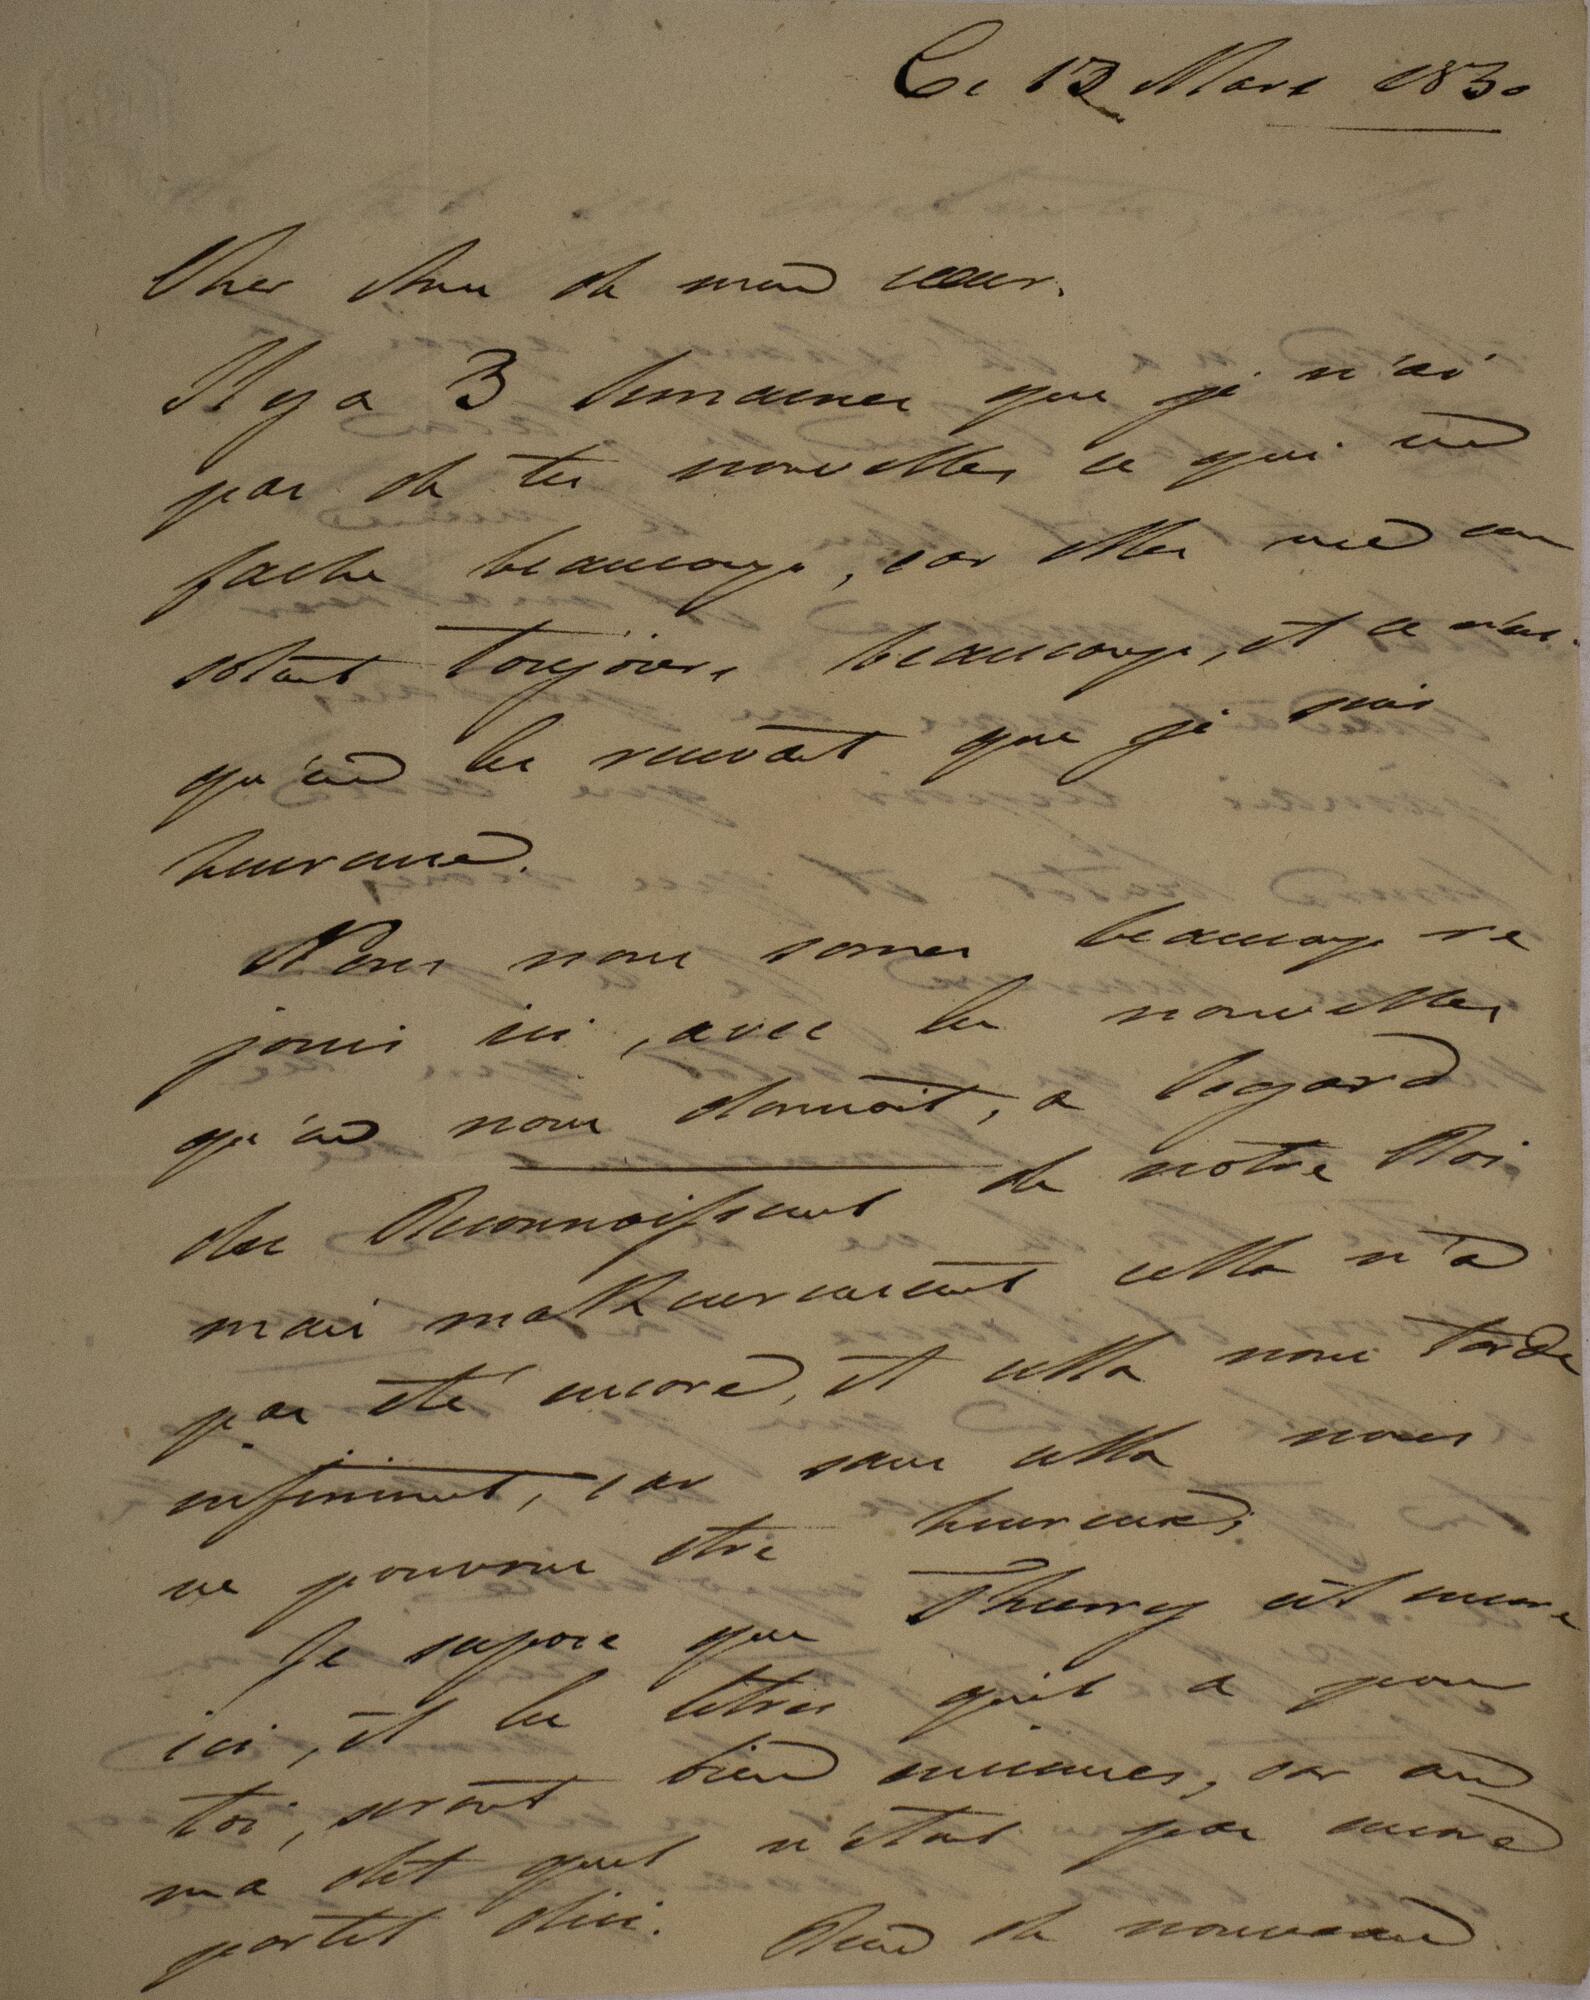 Ce 13 Mars 1830
Cher Ami de mon cœur.
Il y a 3 semaines que je n'ai
pas de tes nouvelles ce qui me
fache beaucoup, car elles me con
solent toujours beaucoup, et ce n'est
qu'en les recevant que je suis
heureuse.
Nous nous somes beaucoup re
jouis ici, avec les nouvelles
qu'on nous donnoit, a legard
des Reconnoissent de notre Roi
mais malheureusement cella n'a
pas été encore, et cella nous tarde
infiniment, car sans cella nous
ne pouvons etre heureux,
Je supose que Thierry est encore
ici, et les letres qu'il a pour
toi, seront bien anciennes, car on
m'a dit quil n'etait pas encore
partit dici. Rien de nouveau